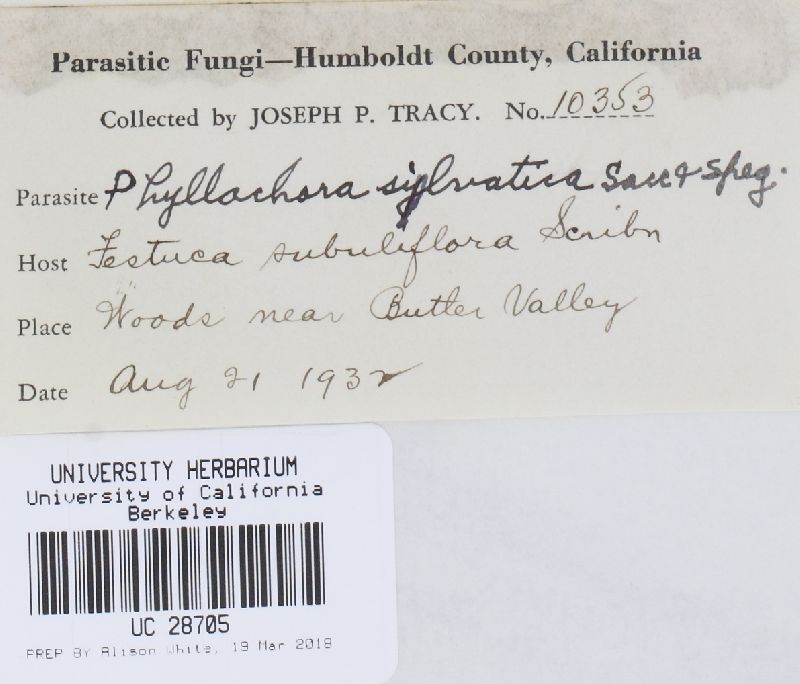 Parasitic Fungi—Humboldt County, California
Collected by JOSEPH P. TRACY. No. 10353
Parasite Phyllachora sylvatica Sacc & Speg.
Host Festuca subuliflora Scribn
Place Woods near Butler Valley
Date Aug 21 1932
UNIVERSITY HERBARIUM
University of California
Berkeley
UC 28705
PREP BY Alison White, 19 Mar 2018